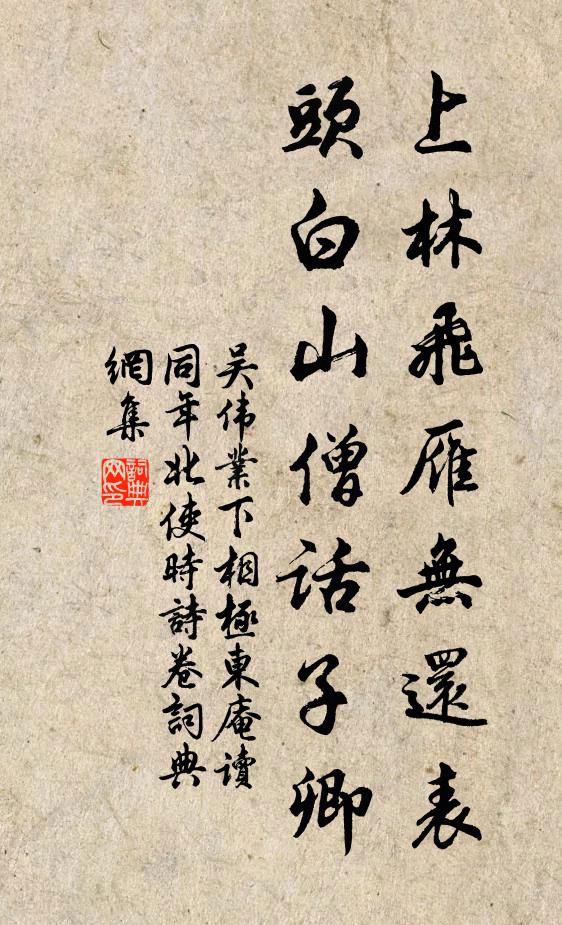 上林飛雁無還表
頭白山僧話子卿
吴伟業下相極東庵讀
同年北使時詩卷詞典
網集
詞典網印